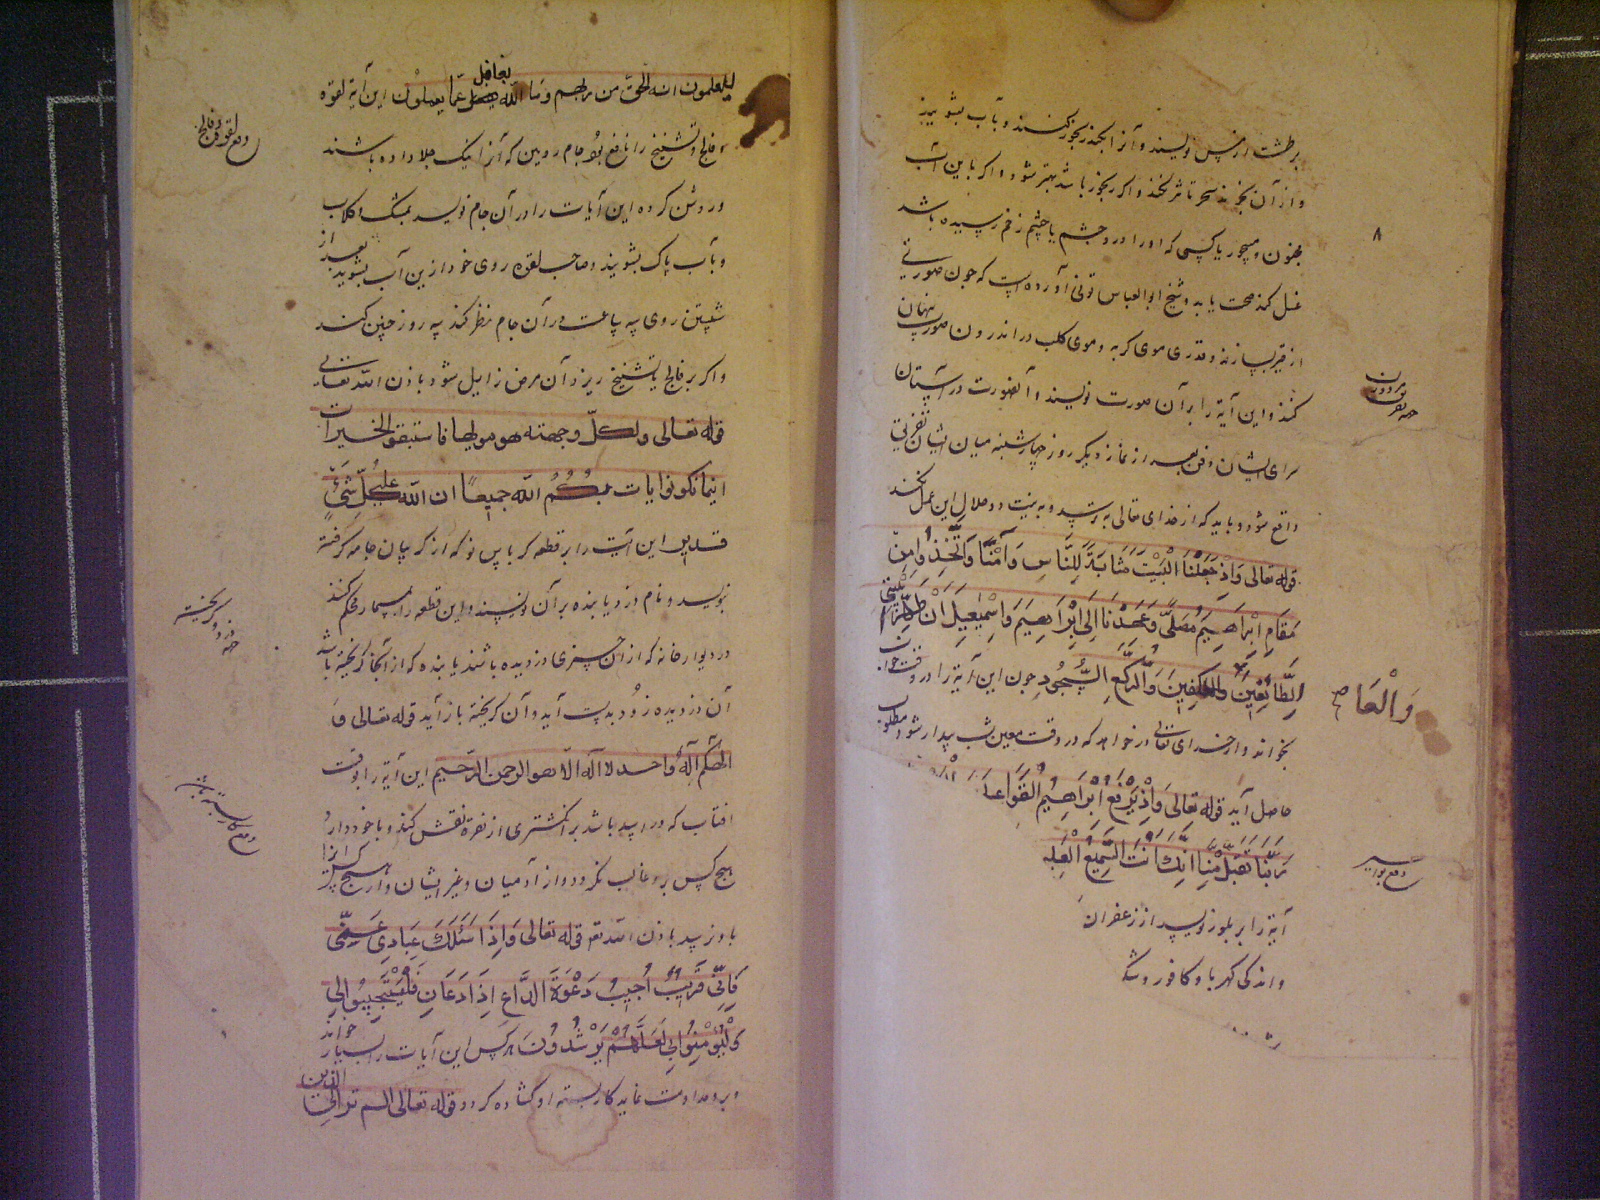 بر طشت ارنس نویسند و آنرا بخور کنند و بآب بشویند
و از آن بخورند سحر تاثر نکند و اگر باشد بهتر شود و اگر باین آب
مجنون و مسحور یا کسی که او را درد چشم یا چشم زخم رسیده باشد
غسل کند صحت یابد و شیخ ابو العباس تونی آورده است که چون صورتی
از قیر بسازند و قدری موی گربه و موی کلب در اندرون صورت پنهان
کنند و این آیة را بر آن صورت نویسند و آنصورت در آستان
سرای ایشان دفن بعد از نماز دیگر روز چهارشنبه میان ایشان تفرقی
واقع شود و باید که از خدای تعالی بترسد و به نیت حلال این عمل کند
قوله تعالی وَاِذْ جَعَلْنَا الْبَیْتَ مَثَابَةً لِلنَّاسِ وَاَمْنًا وَاتَّخِذُوا مِنْ
مَقَامِ اِبْرَاهِیمَ مُصَلًّی وَعَهِدْنَا اِلَی اِبْرَاهِیمَ وَاِسْمٰعِیلَ اَنْ طَهِّرَا بَیْتِیَ
لِلطَّائِفِینَ وَالْعَاکِفِینَ وَالرُّکَّعِ السُّجُودِ چون این آیة را در وقت خواب
وَالْعَا صح
بخواند و از خدای تعالی درخواهد که در وقت معین شب بیدار شود مطلوب
حاصل آید قوله تعالی وَاِذْ یَرْفَعُ اِبْرَاهِیمُ الْقَوَاعِدَ
رَبَّنَا تَقَبَّلْ مِنَّا اِنَّكَ اَنْتَ السَّمِیعُ الْعَلِ
دفع بواسیر
آیة را بر بلور نویسد از زعفران
و اندکی کهربا و کافور و مشک
۸
لیعلمون انه الحق من ربهم وما الله بغافل عما یعملون این آیة لقوه
و فالج و تشنج را نافع بود جام رویین که آنرا نیک جلا داده باشند
دفع لقوه و فالج
و روشن کرده این آیات را در آن جام نویسد بمشک و گلاب
و بآب پاک بشویند و صاحب لقوه روی خود ازین آب بشوید بعد از
شستن روی سه ساعت در آن جام نظر کند سه روز چنین کند
و اگر بر فالج یا تشنج ریزد آن مرض زایل شود باذن الله تعالی
قوله تعالی ولکلّ وجهته هو مولیها فاستبقوا الخیرات
اینما تکونوا یات بکُمُ الله جمیعًا ان الله علی کُلّ شَیْءٍ
قدیر این آیت را بر قطعه کرباس نو که از گریبان جامه گرفته
نویسد و نام دزد یا بنده بر آن نویسند و این قطعه را بمسمار محکم کنند
در دیوار خانه که از آن چیزی دزدیده باشند یا بنده که از آنجا گریخته باشد
آن دزدیده زود بدست آید و آن گریخته باز آید قوله تعالی وَ
الهکم الهٌ واحد لا اله الّا هو الرحمن الرّحیم این آیة را بوقت
افتاب که در اسد باشد بر انگشتری از نقره نقش کند و با خود دارد
هیچ کس برو غالب نگردد از آدمیان و غیر ایشان و از هیچ کس ایذا
باو نرسد باذن الله تعه قوله تعالی وَاِذَا سَئَلَكَ عِبَادِی عَنِّی
فَاِنِّی قَرِیبٌ اُجِیبُ دَعْوَةَ الدَّاعِ اِذَا دَعَانِ فَلْیَسْتَجِیبُوا لِی
وَلْیُؤْمِنُوا بِی لَعَلَّهُمْ یَرْشُدُونَ هر کس این آیات را بسیار خواند
و برو مداومت نماید کار بسته او گشاده گردد قوله تعالی الم تر الی الذین